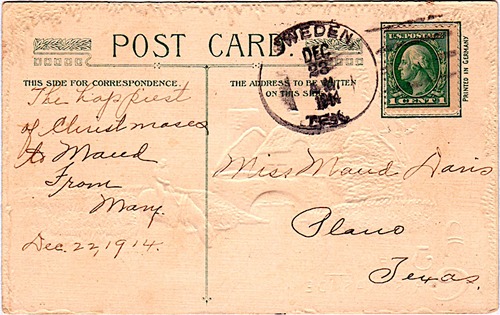 POST CARD
SWEDEN
DEC
1914
TEX.
U.S. POSTAGE
1 CENT 1
PRINTED IN GERMANY
THIS SIDE FOR CORRESPONDENCE.
THE ADDRESS TO BE WRITTEN
ON THIS SIDE
The happiest
of Christmases
to Maud
From
Mary.
Dec. 22, 1914.
Miss Maud Davis
Plano
Texas.